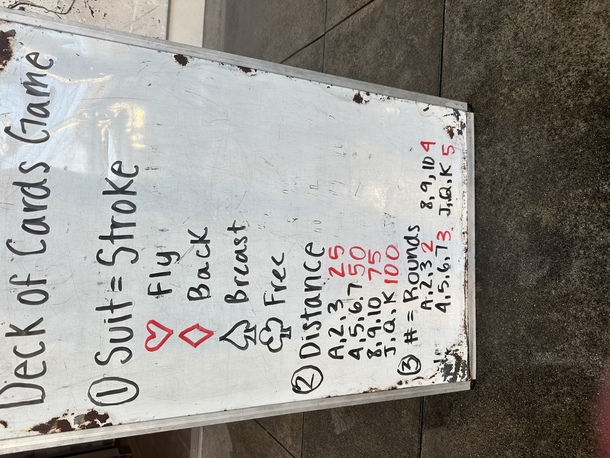 Deck of Cards Game
① Suit = Stroke
♡ Fly
♢ Back
♤ Breast
♧ Free
② Distance
A, 2, 3 25
4, 5, 6, 7 50
8, 9, 10 75
J, Q, K 100
③ # = Rounds
A, 2, 3 2 8, 9, 10 4
4, 5, 6, 7 3 J, Q, K 5